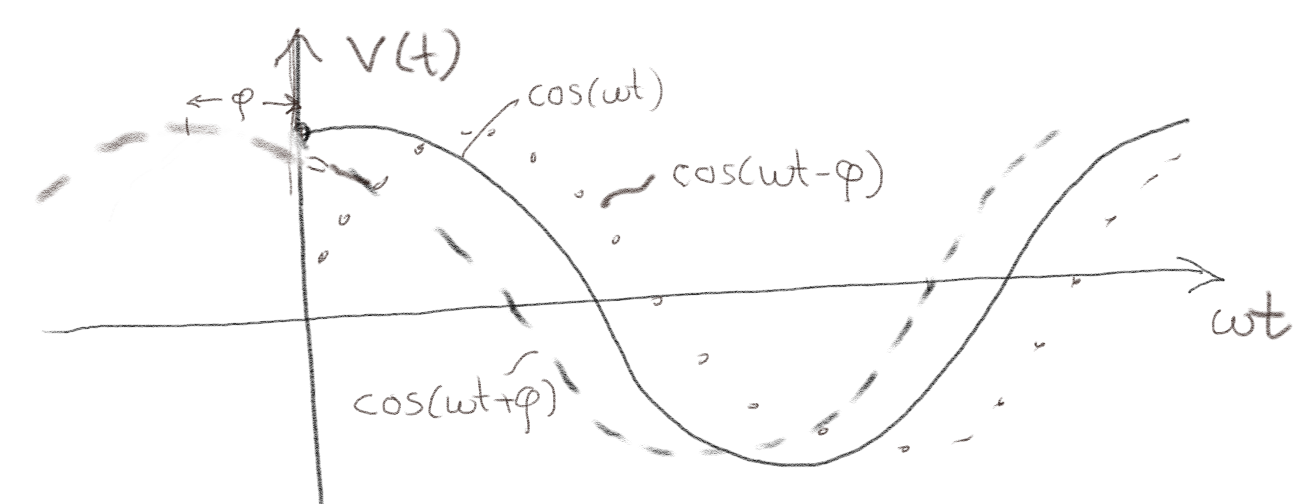 V(t)
φ
cos(ωt)
cos(ωt-φ)
ωt
cos(ωt+φ)